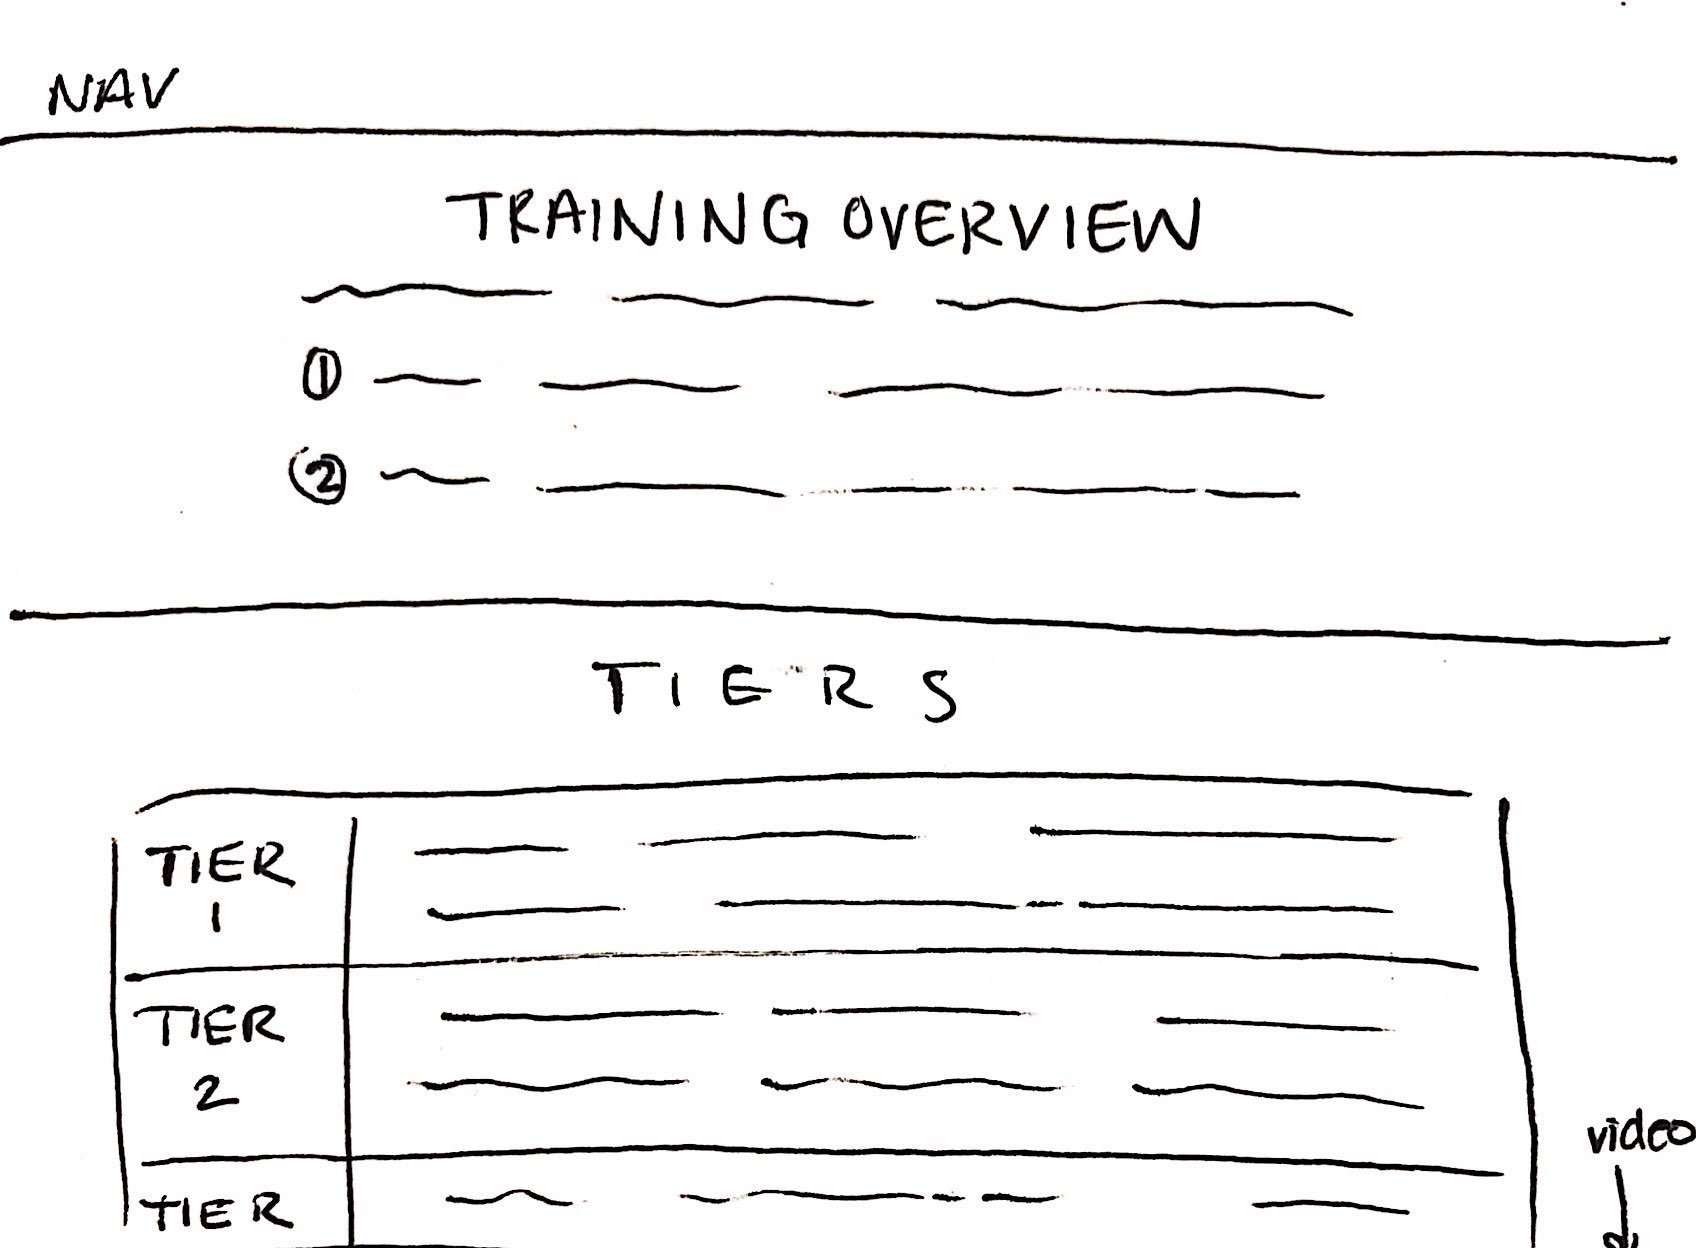 NAV
TRAINING OVERVIEW
①
②
TIERS
TIER
1
TIER
2
TIER
video